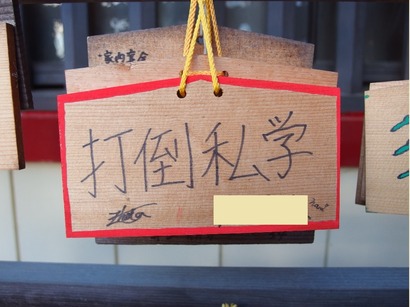 家内安全
打倒私学